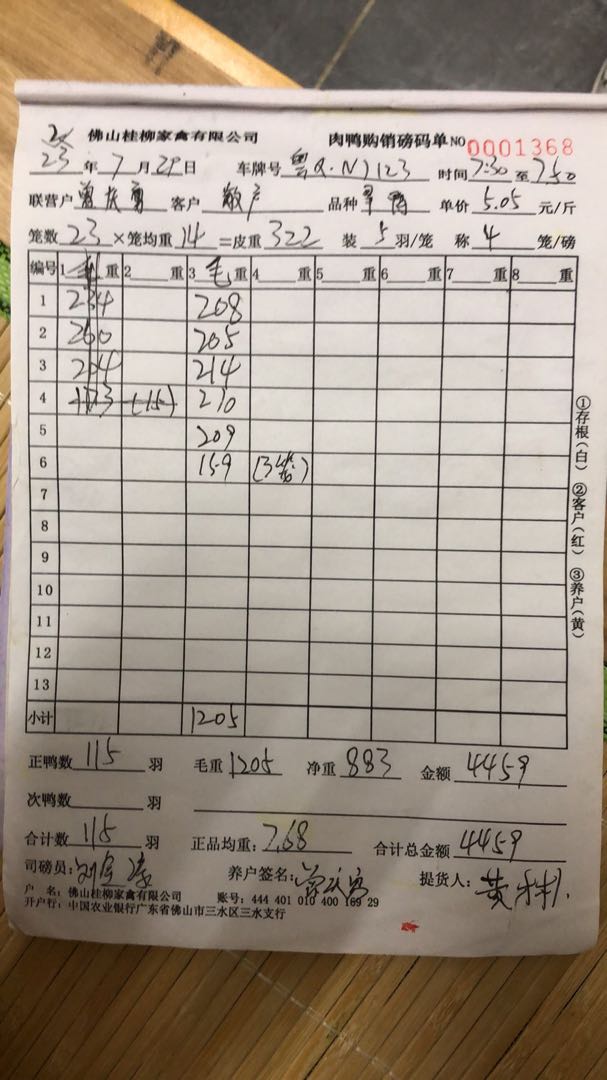 佛山桂柳家禽有限公司 肉鸭购销磅码单 NO 0001368
23年7月29日 车牌号 粤Q·N7123 时间 7:30 至 7:50
联营户 客户 散户 品种 单价 5.05 元/斤
笼数 23 ×笼均重 14 =皮重 322 装 5 羽/笼 称 4 笼/磅
编号 1 重 2 重 3 毛 重 4 重 5 重 6 重 7 重 8 重
1 234 208
2 260 205
3 204 214
4 173 (15) 210
5 209
6 159 (3笼)
7
8
9
10
11
12
13
小计 1205
正鸭数 115 羽 毛重 1205 净重 883 金额 4459
次鸭数 羽
合计数 115 羽 正品均重: 7.68 合计总金额 4459
司磅员: 养户签名: 提货人:
户 名: 佛山桂柳家禽有限公司 账号: 444 401 010 400 169 29
开户行: 中国农业银行广东省佛山市三水区三水支行
①存根(白) ②客户(红) ③养户(黄)